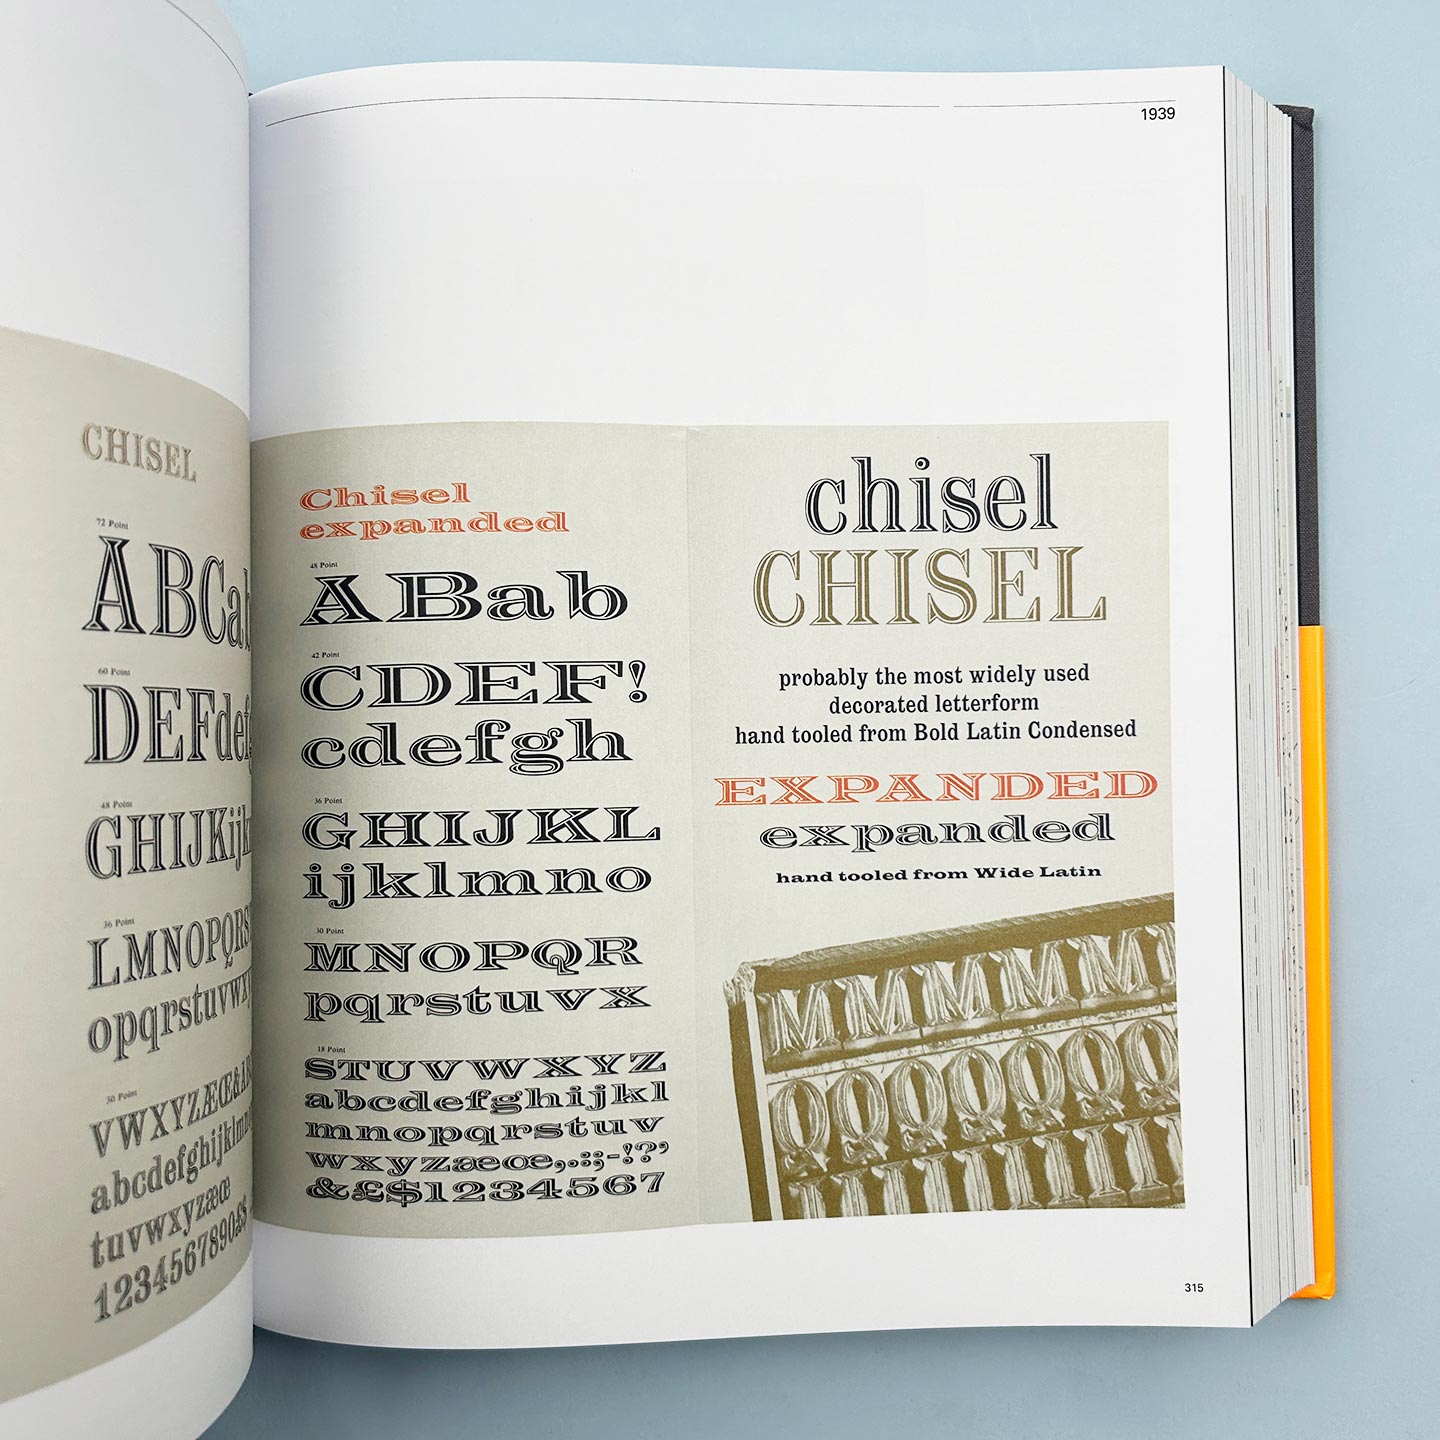 CHISEL
72 Point
ABCab
60 Point
DEFdef
48 Point
GHIJKijk
36 Point
LMNOPQRS
opqrstuvwx
30 Point
VWXYZÆŒ&
abcdefghijklmn
tuvwxyzæœ
1234567890£$
1939
Chisel
expanded
48 Point
ABab
42 Point
CDEF!
cdefgh
36 Point
GHIJKL
ijklmno
30 Point
MNOPQR
pqrstuvx
18 Point
STUVWXYZ
abcdefghijkl
mnopqrstuv
wxyzæœ,.:;-!?'
&£$1234567
chisel
CHISEL
probably the most widely used
decorated letterform
hand tooled from Bold Latin Condensed
EXPANDED
expanded
hand tooled from Wide Latin
MMMMMM
QQQQQQQ
315